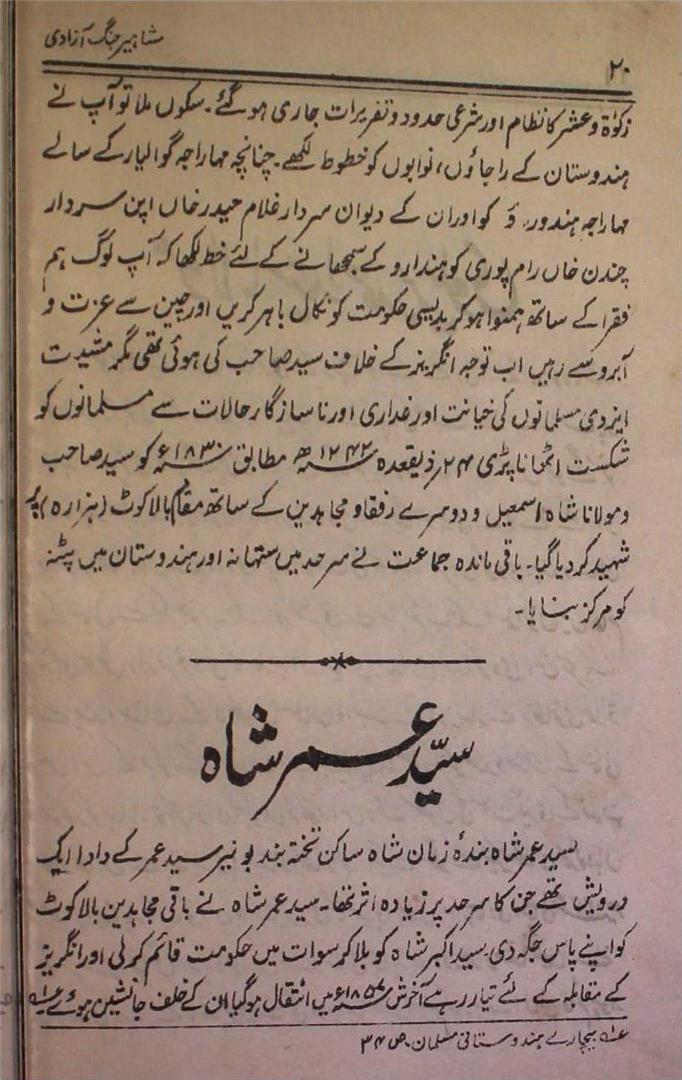 مشاہیر جنگ آزادی
۲۰
زکوٰۃ و عشر کا نظام اور شرعی حدود و تعزیرات جاری ہو گئے۔ سکوں ملا تو آپ نے
ہندوستان کے راجاؤں، نوابوں کو خطوط لکھے۔ چنانچہ مہاراجہ گوالیار کے سالے
مہاراجہ ہندور ؤ کو اور ان کے دیوان سردار غلام حیدر خاں ابن سردار
چندن خاں رام پوری کو ہندارو کے سمجھانے کے لئے خط لکھا کہ آپ لوگ ہم
فقرا کے ساتھ ہمنوا ہو کر بدیسی حکومت کو نکال باہر کریں اور چین سے عزت و
آبرو سے رہیں اب توجہ انگریز کے خلاف سید صاحب کی ہوئی تھی مگر مشیت
ایزدی مسلمانوں کی خیانت اور غداری اور ناسازگار حالات سے مسلمانوں کو
شکست اٹھانا پڑی ۲۴؍ ذیقعدہ ۱۲۴۲ھ مطابق ۱۸۳۰ء کو سید صاحب
و مولانا شاہ اسمعیل و دوسرے رفقا و مجاہدین کے ساتھ مقام بالاکوٹ (ہزارہ) پر
شہید کر دیا گیا۔ باقی ماندہ جماعت نے سرحد میں ستھانہ اور ہندوستان میں پٹنہ
کو مرکز بنایا۔
سیّد عمر شاہ
سید عمر شاہ بندۂ زمان شاہ ساکن تختہ بند بونیر سید عمر کے دادا ایک
درویش تھے جن کا سرحد پر زیادہ اثر تھا۔ سید عمر شاہ نے باقی مجاہدین بالاکوٹ
کو اپنے پاس جگہ دی۔ سید اکبر شاہ کو بلا کر سوات میں حکومت قائم کر لی اور انگریز
کے مقابلہ کے لئے تیار رہے آخرش ۱۸۵۷ء میں انتقال ہو گیا ان کے خلف جانشین ہوئے
بیچارے ہندوستانی مسلمان۔ ص ۳۴